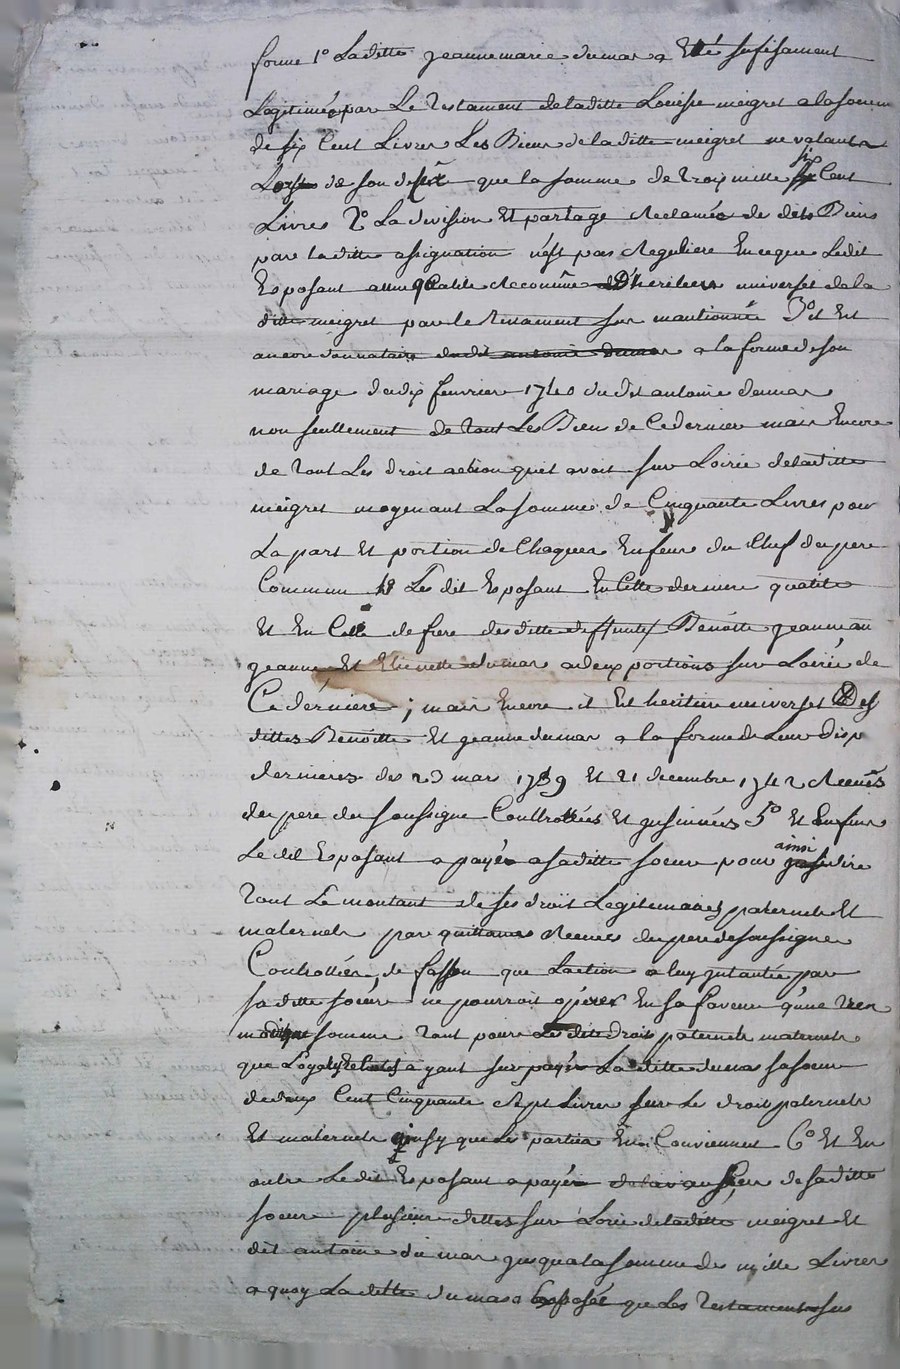 forme 1° Laditte jeannemarie dumas a Eté sufisament
Legitimée par Le Testament deladitte Louise meigret alasomme
de six Cent Livres Les Biens deladitte meigret ne valant
Lors de son deséz que la somme de trois mille six Cent
Livres 2° La division Et partage Reclamée de dets Biens
par laditte assignation n'est pas Reguliere Enceque Ledit
Exposant aune qualité Reconnüe D'heritiers universel dela
ditte meigret par le Testament sus mantionné 3° il Est
ancore donnataire dudit antoine dumas a la forme deson
mariage du dix fevrier 1740 dudit antoine dumas
non seullement de Tout Les Bien de Cedernier mais Encore
de Tout Les droit action quil avoit sur Loirie deladitte
meigret moyenant La somme de Cinquante Livres pour
La part Et portion de Chaques Enfens du Chef du pere
Commun Les dit Exposant En Cette derniere qualité
Et En Celle de frere des ditte deffuntes Benoitte jeanne au
jeanne Et Etiennette dumas adeux portions sur Loirie de
Ce dérniere ; mais Encore il Est heritier universel Des
dittes Benoitte Et jeanne dumas a la forme de Leur disp
dernieres des 23 mars 1739 Et 21 decembre 1742 Receües
du pere du soussigne Conttrollées Et insinuées 5° Et Enfin
Le dit Exposant a payée asaditte soeur pour ainsi dire
Tout Le montant de ses droit Legitimaires paternels Et
maternels par quittance Receues du pere du soussigne
Controllées, de fasson que Laction a luy intantée par
sa ditte soeur ne pourroit opérer En sa faveur qune Tres
modique somme Tant pour Les dits droit paternels maternels
que ayant sus payée Laditte dumas sasoeur
de deux Cent Cinquante sept Livres sur Les droit paternels
Et maternels insy que Les parties En Conviennent 6° Et En
outre Le dit Exposant a payée de saditte
soeur plusieur dettes sur Loirie deladitte meigret Et
dit antoine du mas jusqualasomme de mille Livres
a quoy La ditte dumas a Exposée que Les Testaments sus